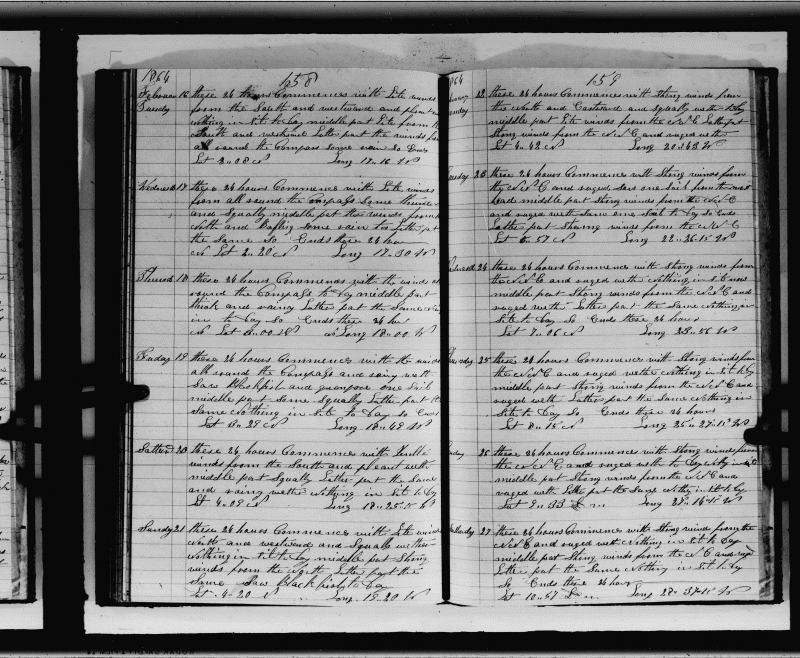 1864 158
Februar 16 these 24 hours Commences with Lite winds
Tuesday from the South and westward and pleasant
nothing in sit to day middle part Lite from the
South and westward Latter part the winds from
all round the Compass some rain So Ends
Lat 2=08 N Long 17=16 W
Wednes 17 these 24 hours Commences with Lite winds
from all round the Compass Some thunder
and Squally middle part the winds from
North and Bafling Some rain Latter part
the Same So Ends these 24 hour
Lat 2=20 N Long 17=30 W
Thursd 18 these 24 hours Commences with the winds all
round the Compass to day middle part
thick and rainy Latter part the Same
in to day So Ends these 24 hur
Lat 3=00 N Long 18=00 W
Friday 19 these 24 hours Commences with the winds
all round the Compass and rainy weth
Saw Blackfish and one Sail
middle part Same Squally Latter part the
Same nothing in Site to day so Ends
Lat 3=29 N Long 18=49 W
Satterd 20 these 24 hours Commences with
winds from the South and pleasant weth
middle part Squally Latter part the Same
and rainy wether nothing in Sit to day
Lat 4=09 N Long 18=25=15 W
Sunday 21 these 24 hours Commences with Lite winds
North and westward and Squally wether
nothing in Sit to day middle part Strong
winds from the North Latter part the
Same Saw Blackfish to day
Lat 4=20 N Long 19=20 W
1864 159
22 these 24 hours Commences with Strong winds from
the North and Eastward and Squally weth to day
middle part Lite winds from the N.N.E Latter part
Strong winds from the N.N.E and ruged weth
Lat 4=42 N Long 20=43 W
23 these 24 hours Commences with Strong winds from
the N.N.E and ruged Saw one Sail from the mast
head middle part Strong winds from the N.N.E
and ruged weth Saw one Sail to day so Ends
Latter part Strong winds from the N.N.E
Lat 5=57 N Long 22=26=15 W
24 these 24 hours Commences with Strong winds from
the N.N.E and ruged weth nothing in sit now
middle part Strong winds from the N.N.E and
ruged weth Latter part the Same nothing in
Site to day So Ends these 24 hours
Lat 7=06 N Long 23=56 W
25 these 24 hours Commences with Strong winds from
the N.N.E and ruged wether nothing in Sit to day
middle part Strong winds from the N.N.E and
ruged weth Latter part the Same nothing in
Site to day So Ends these 24 hours
Lat 8=15 N Long 25=27=15 W
26 these 24 hours Commences with Strong winds from
the N.N.E and ruged weth to day
middle part Strong winds from the N.N.E and
ruged weth Latter part the Same nothing in Sit to day
Lat 9=33 Long 27=14=15 W
27 these 24 hours Commence with Strong winds from the
N.N.E and ruged weth nothing in Sit to day
middle part Strong winds from the N.N.E and
Latter part the Same nothing in Sit to day
So Ends these 24 hour
Lat 10=57 Long 28=37=15 W